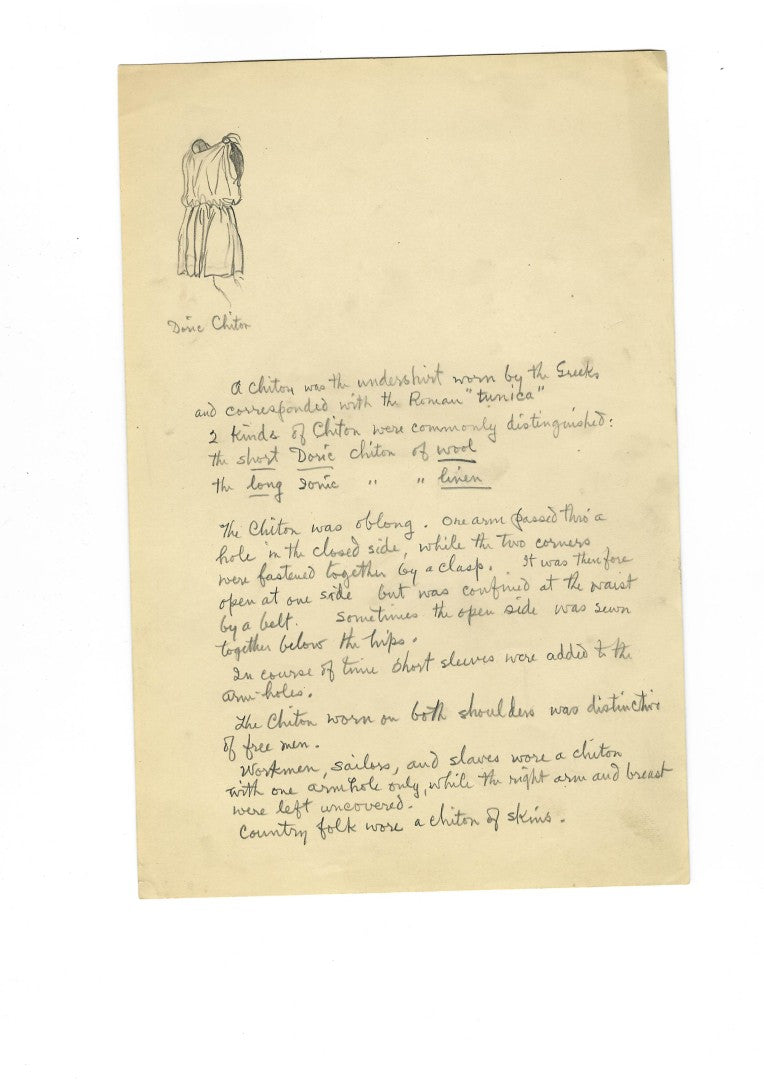 Doric Chiton
A Chiton was the undershirt worn by the Greeks
and corresponded with the Roman "tunica"
2 kinds of Chiton were commonly distinguished:
the short Doric chiton of wool
the long Ionic " " linen
The Chiton was oblong. One arm passed thro' a
hole in the closed side, while the two corners
were fastened together by a clasp. It was therefore
open at one side but was confined at the waist
by a belt. Sometimes the open side was sewn
together below the hips.
In course of time short sleeves were added to the
arm-holes.
The Chiton worn on both shoulders was distinctive
of free men.
Workmen, sailors, and slaves wore a chiton
with one armhole only, while the right arm and breast
were left uncovered.
Country folk wore a chiton of skins.